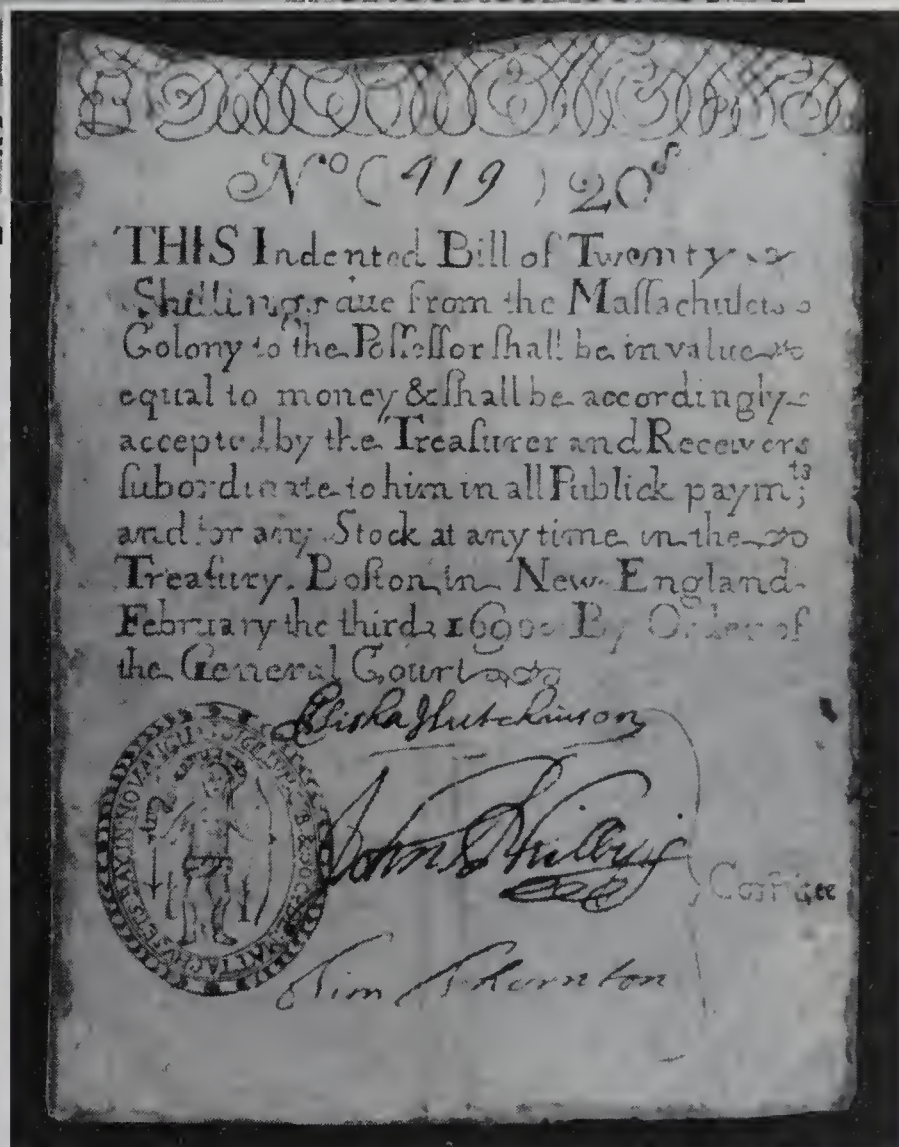 No (419) 20s
THIS Indented Bill of Twenty
Shillings due from the Maſſachuſets
Colony to the Poſſeſſor ſhall be in value
equal to money & ſhall be accordingly
accepted by the Treaſurer and Receivers
ſubordinate to him in all Publick paymts;
and for any Stock at any time in the
Treaſury. Boſton in New England
February the third 1690. By Order of
the General Court
Elisha Hutchinson
John Phillips
Comitee
Tim Thornton